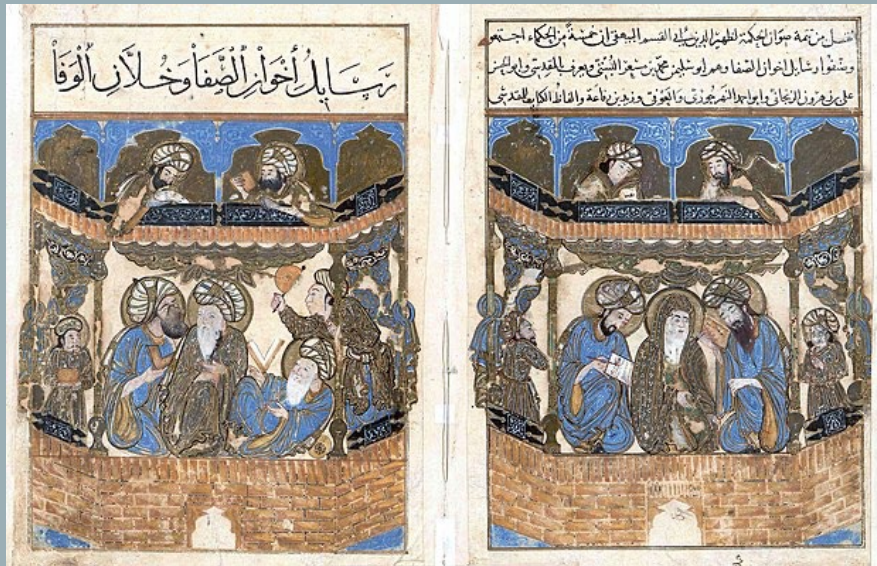 من تتمة صوان الحكمة لظهير الدين ابي القسم البيهقي ان خمسة من الحكماء اجتمعو
وصنفوا رسايل اخوان الصفا وهم ابو سليمن محمد بن مسعر البستي ويعرف بالمقدسي وابو الحسن
علي بن زهرون الزنجاني وابو احمد النهرجوري والعوفي وزيد بن رفاعة والفاظ الكتاب للمقدسي
رَسَايلُ أخْوَانِ الصَّفَا وَخُلَّانِ الْوَفَا